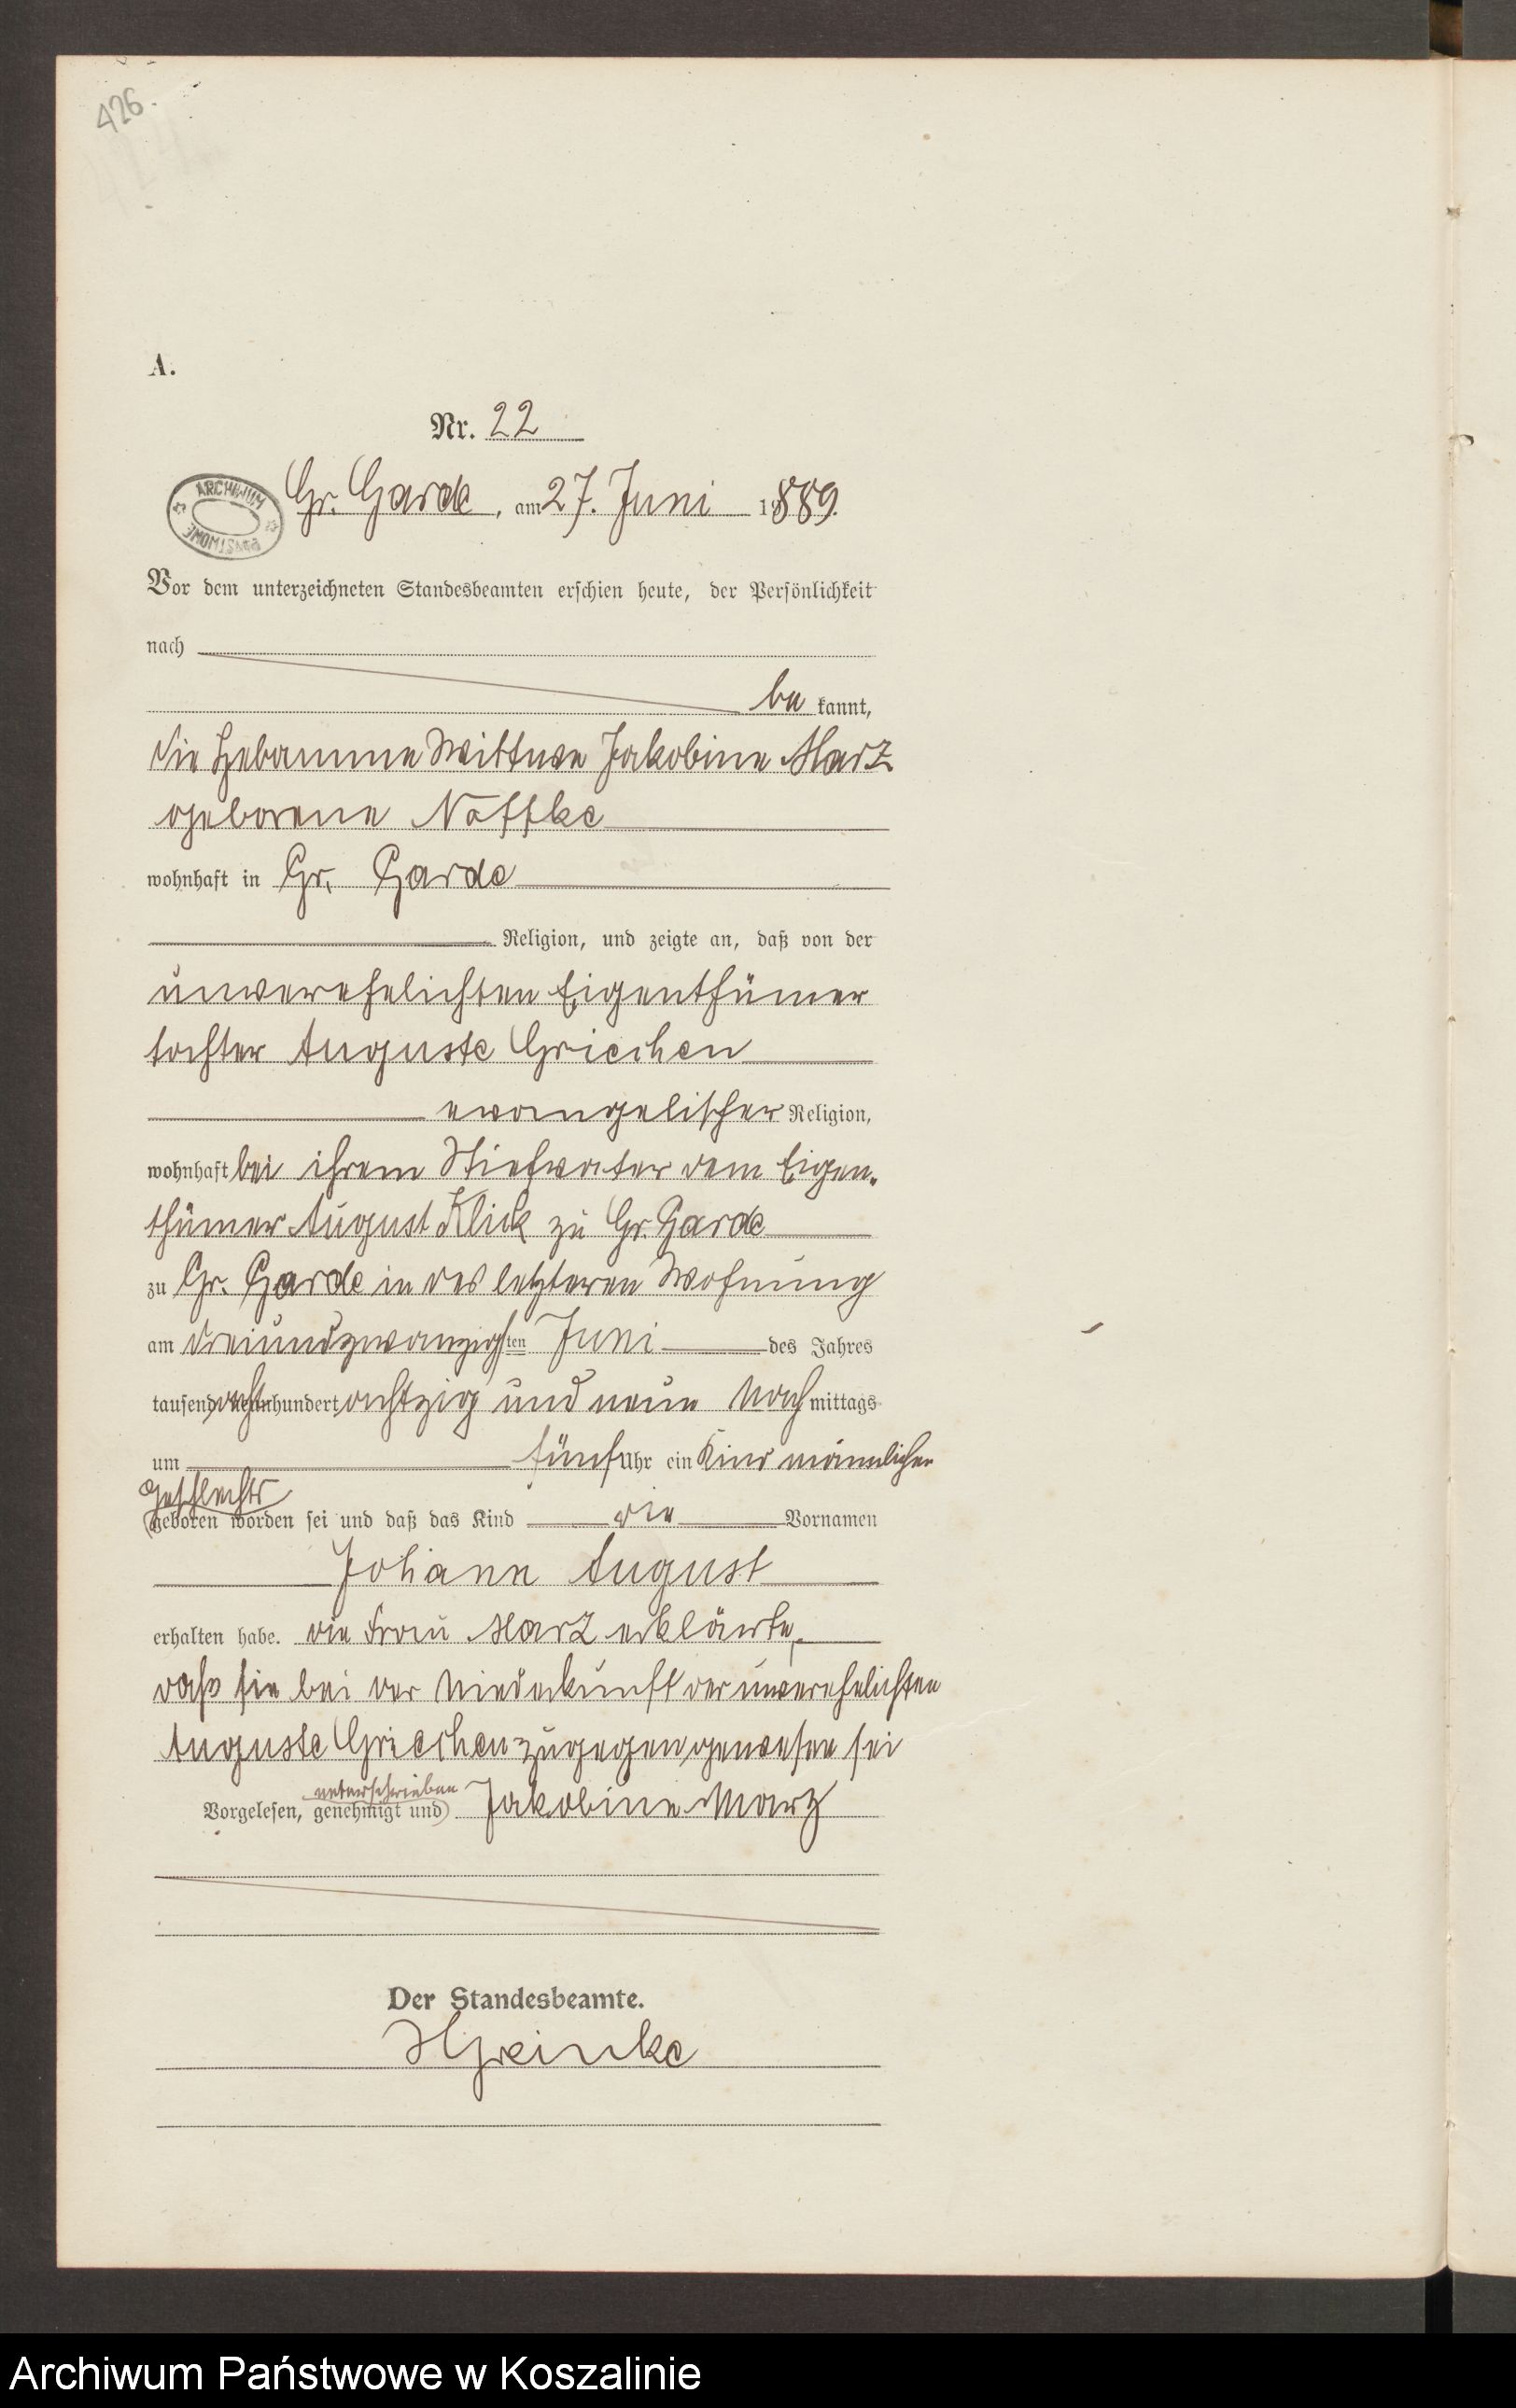 426.
A.
Nr. 22
ARCHIWUM
PAŃSTWOWE
Gr. Garde, am 27. Juni 1889.
Vor dem unterzeichneten Standesbeamten erschien heute, der Persönlichkeit
nach
be kannt,
die Hebamme Wittwe Jakobine Marz
geborene Noffke
wohnhaft in Gr. Garde
Religion, und zeigte an, daß von der
unverehelichten Eigenthümer
tochter Auguste Griechen
evangelischer Religion,
wohnhaft bei ihrem Stiefvater dem Eigen-
thümer August Klick zu Gr. Garde
zu Gr. Garde in des letzteren Wohnung
am dreiundzwanzigsten Juni des Jahres
tausend achthundert achtzig und neun Nach mittags
um fünf Uhr ein Kind männlichen
Geschlechts
geboren worden sei und daß das Kind die Vornamen
Johann August
erhalten habe. die Frau Marz erklärte,
daß sie bei der Niederkunft der unverehelichten
Auguste Griechen zugegen gewesen sei
unterschrieben
Vorgelesen, genehmigt und Jakobine Marz
Der Standesbeamte.
Archiwum Państwowe w Koszalinie